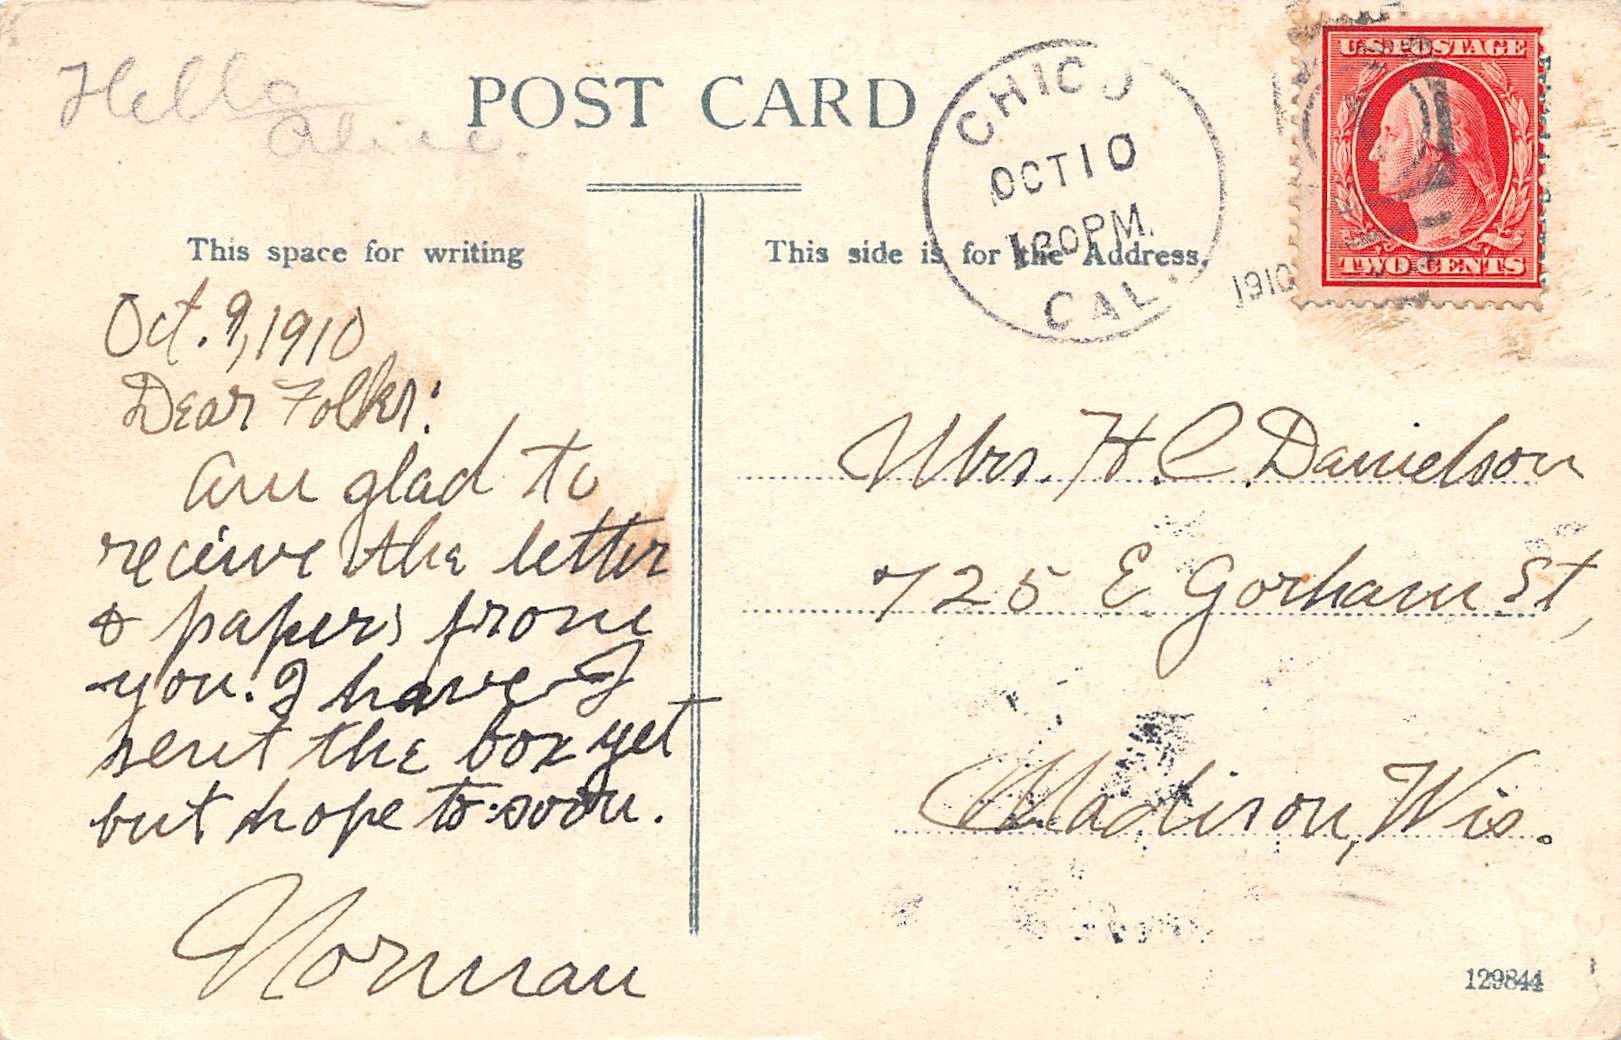 Hello
Alice.
POST CARD
CHICO
OCT 10
1 30 PM.
CAL.
1910
U.S. POSTAGE
TWO CENTS
This space for writing
This side is for the Address.
Oct. 9, 1910
Dear Folks:
Am glad to
receive the letter
& papers from
you. I have I
sent the box yet
but hope to soon.
Norman
Mrs. H C Danielson
725 E Gorham St,
Madison, Wis.
129844